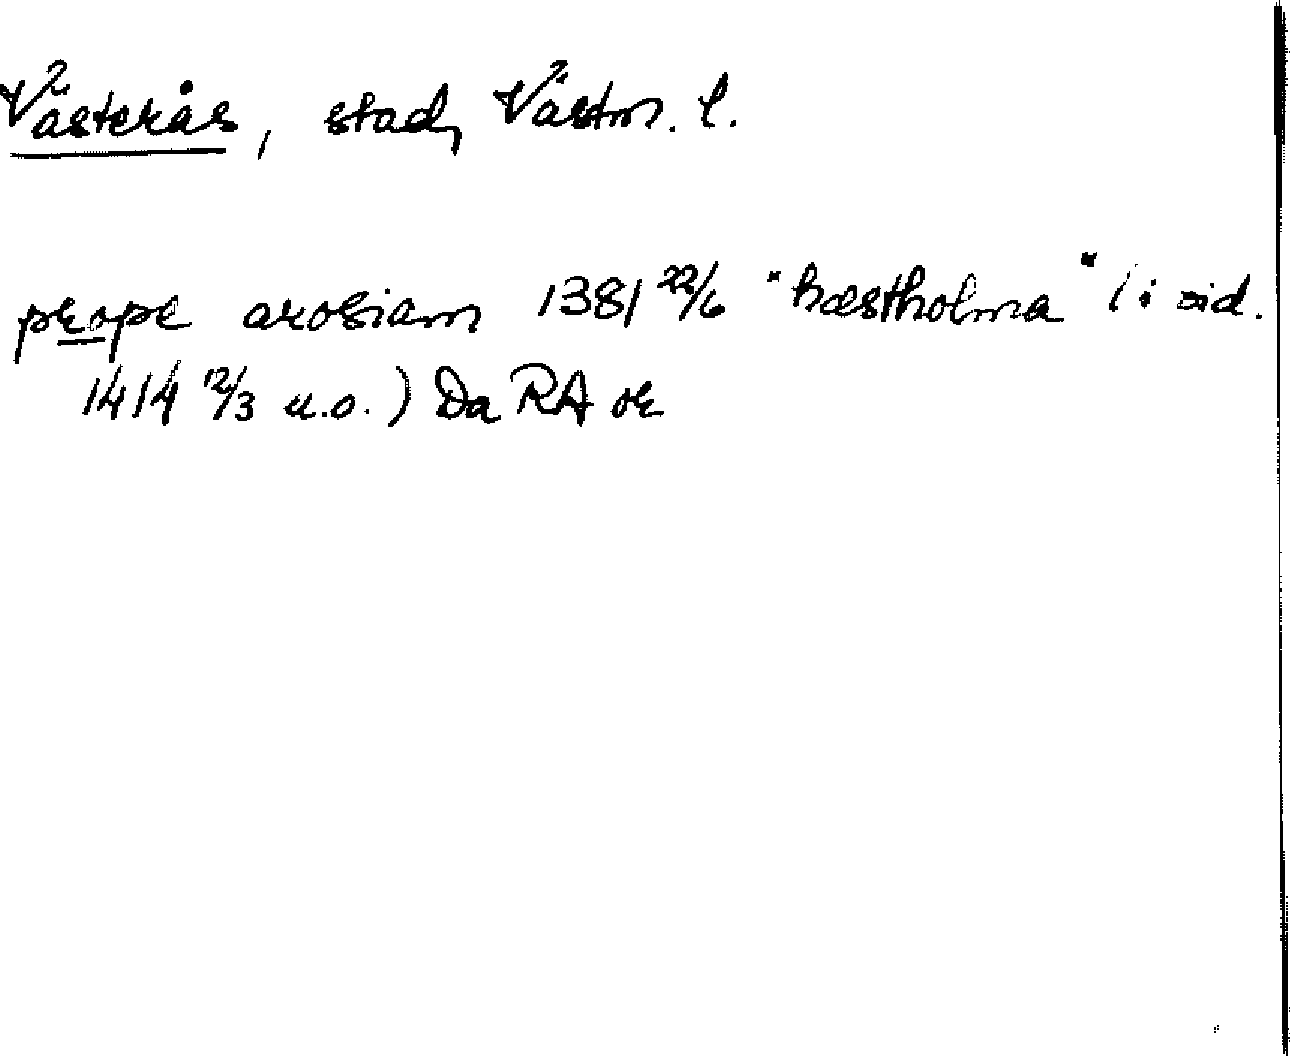 Västerås, stad, Västm. l.
prope arosiam 1381 22/6 "hæstholma" (i vid.
1414 12/3 u.o.) Da RA or